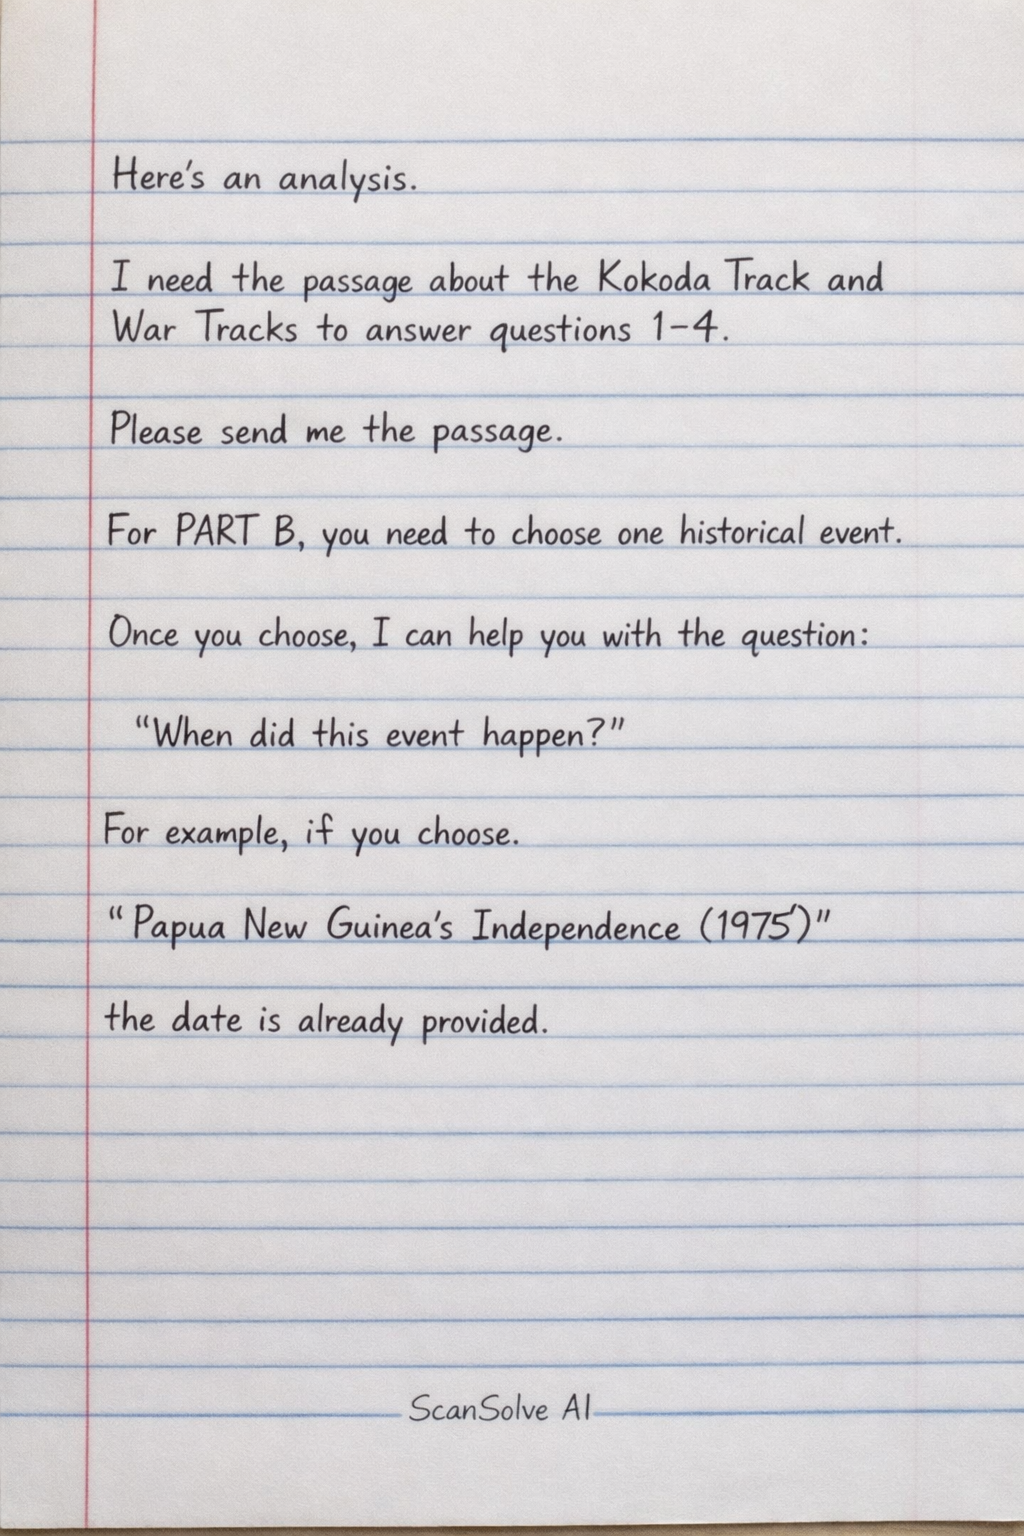 Here's an analysis.
I need the passage about the Kokoda Track and
War Tracks to answer questions 1-4.
Please send me the passage.
For PART B, you need to choose one historical event.
Once you choose, I can help you with the question:
"When did this event happen?"
For example, if you choose.
"Papua New Guinea's Independence (1975)"
the date is already provided.
ScanSolve AI